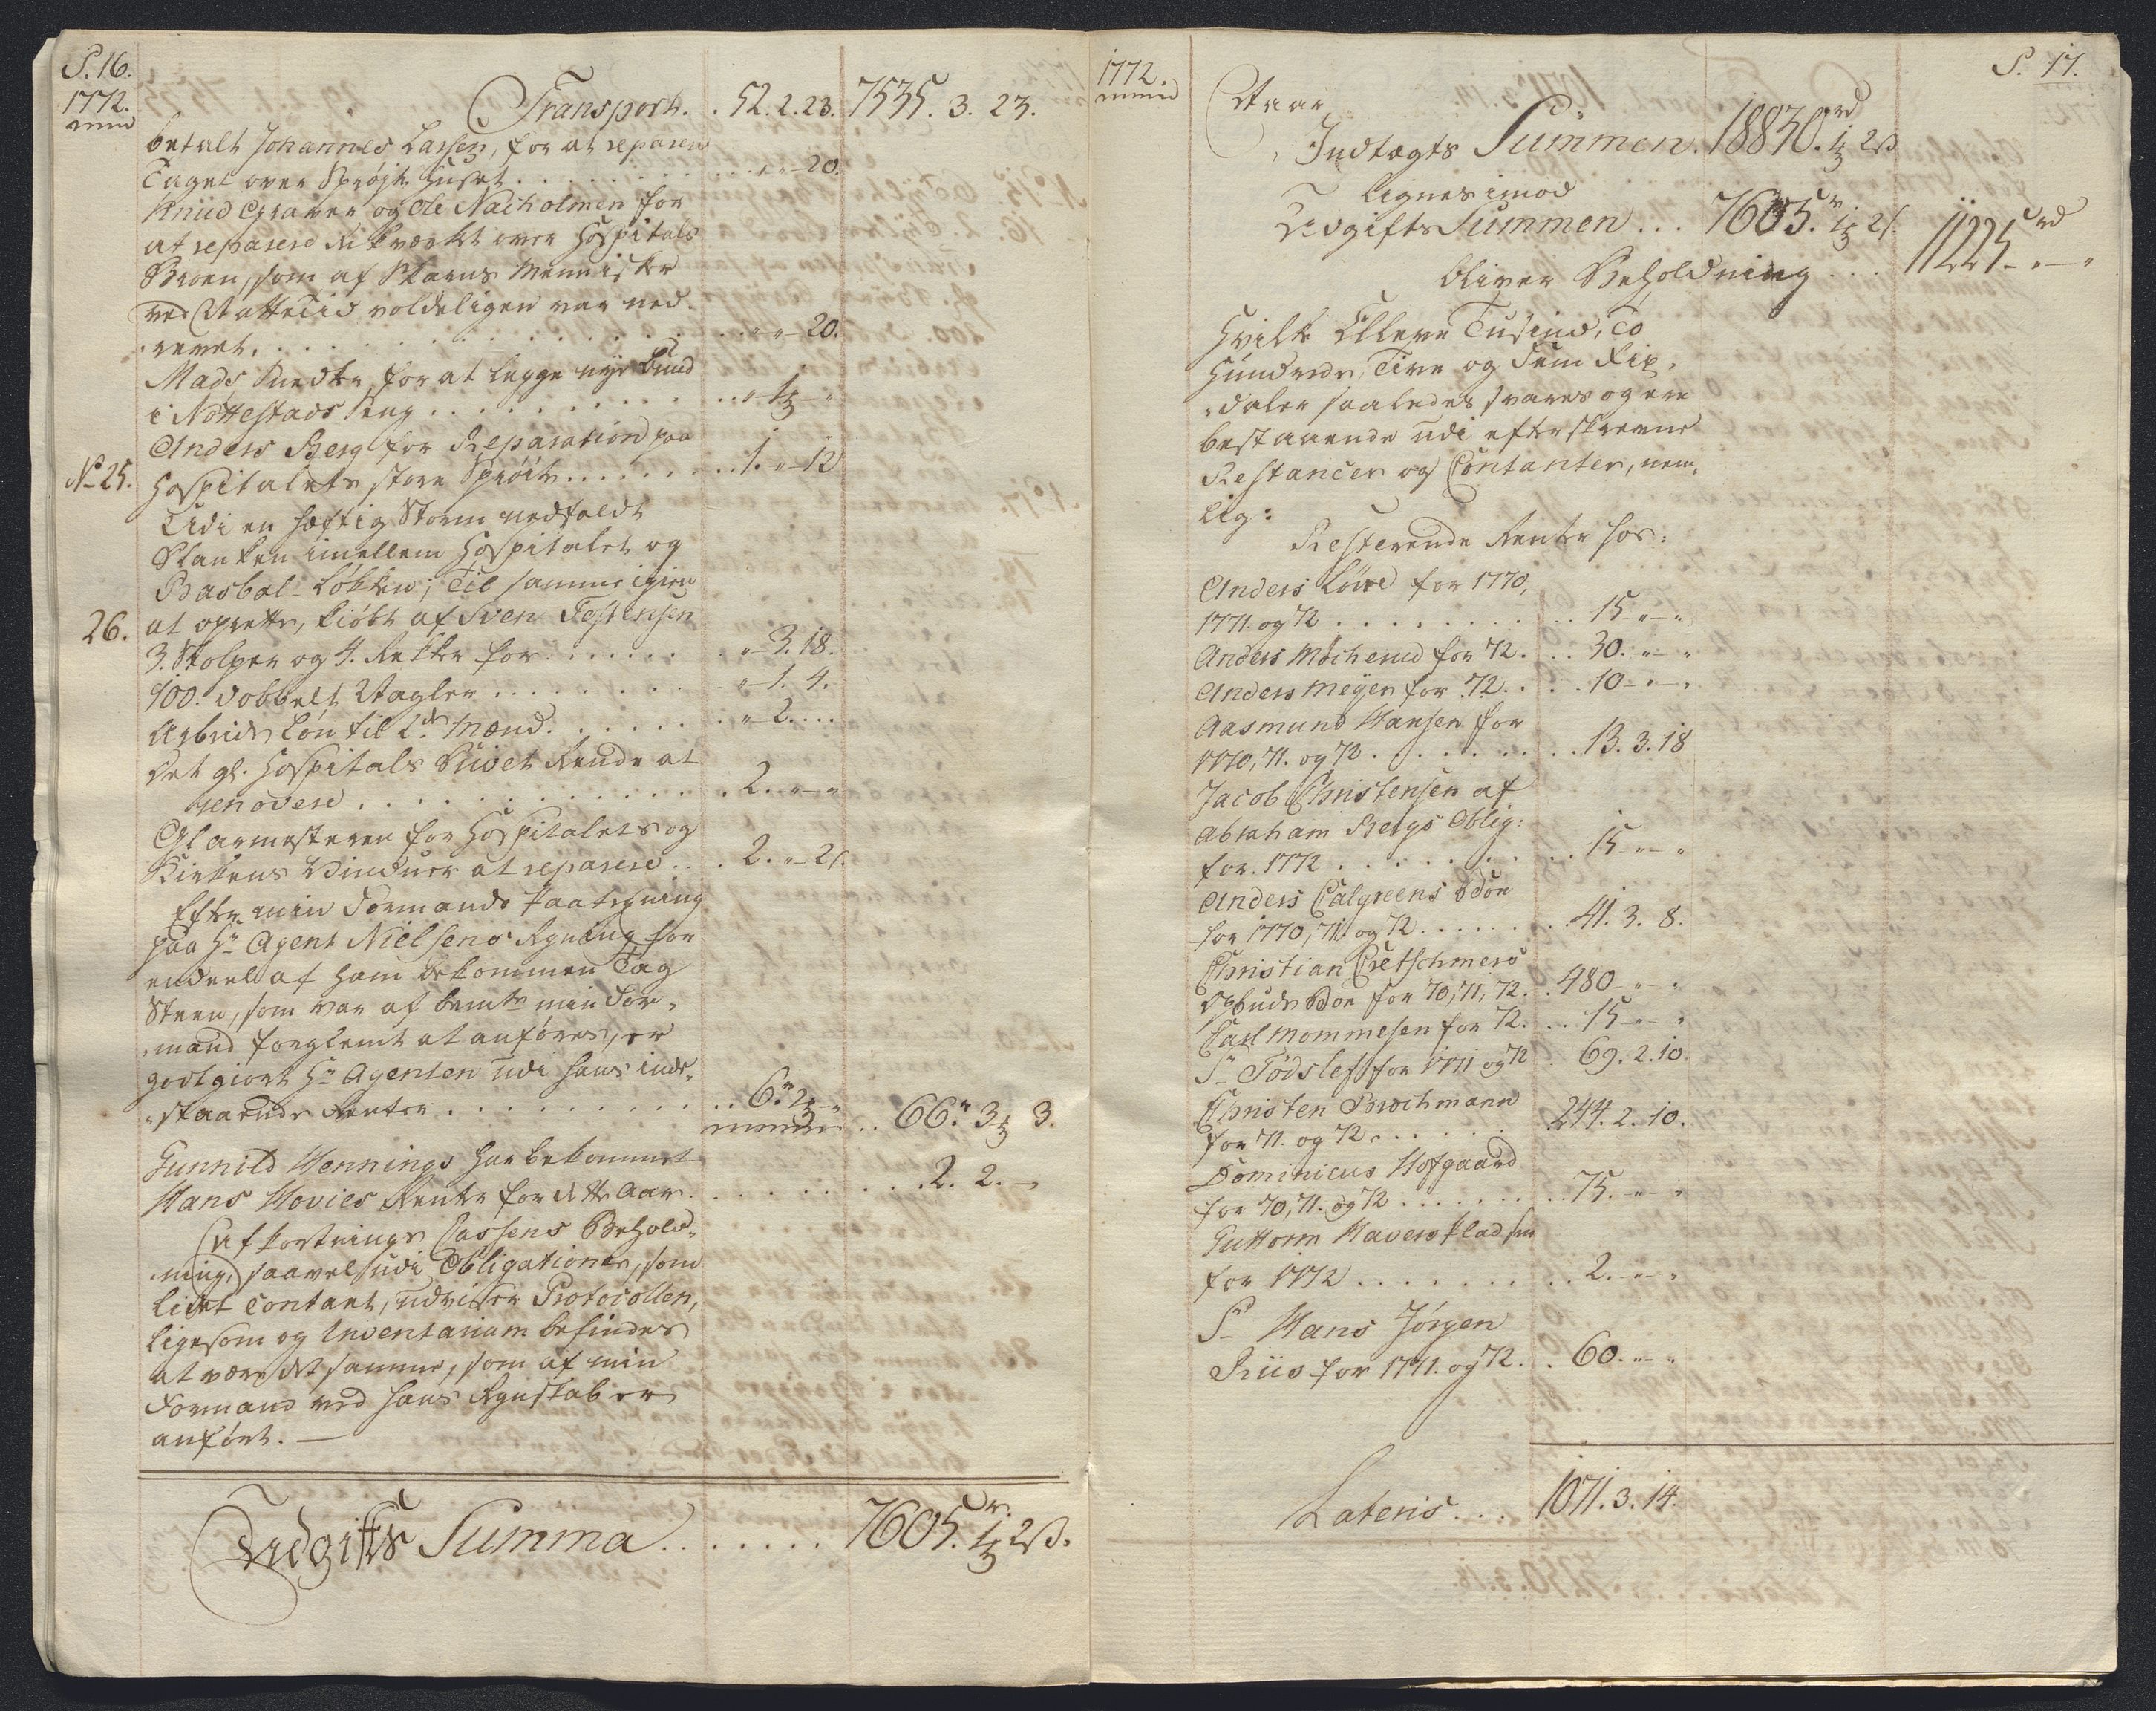 S. 16.
1772.
Transport. . 52. 2. 23. 7535. 3. 23.
betalt Johannes Lassen, for at reparere
Taget over Sprøjte Huset . . . . . . „ „ 20.
Knud Graver og Ole Nacholmen for
at reparere Rekverket over Hospitals
Broen, som af Skarns Mennisker
ved Natte Tid voldeligen var ned-
revet, . . . . . . „ „ 20.
Mads Snedker for at legge nye Bund
i Nottestads Seng . . . . . . „ 1 „
Anders Berg for Reparation paa
No 25. Hospitalets store Sprøite . . . . . . 1. „ 12
Udi en hæftig Storm nedfaldt
Planken imellem Hospitalet og
Basbøl-Løkken; Til samme igien
26. at oprette, kiøbt af Sven Testensen
3. Stolper og 4. Rekker for . . . . . . „ 3. 18.
100. dobbelt Nagler . . . . . . „ 1. 4.
Arbeids Løn til 2de Mænd . . . . . . „ 2. . .
Det gl. Hospitals Privet Rende at
renovere . . . . . . 2. „ „
Glarmesteren for Hospitalets og
Kirkens Vinduer at reparere . . 2. „ 21.
Efter min Formands Paategning
paa Hr Agent Nielsens Regning for
endeel af ham bekommen Tag
Steen, som var af bemte min For-
mand forglemt at anføres, er
godtgiort Hr Agenten udi hans inde-
staaende Renter . . . . . . 6. 2 „
66. 3 3.
Gunnild Hennings har bekommet
Hans Hovies Rente for dette Aar . . . . . . 2. 2. „
(Afkortnings Cassens Behold-
ning,) saavel udi Obligationer, som
Liert Contant, udviser Protocollen,
ligesom og Inventarium befindes
at være det samme, som af min
Formand ved hans Regnskab er
anført. —
Udgifts Summa . . . . . . 7605. 1 2 ß.
1772.
S. 17.
Naar
Indtægts Summen. 18830 rd 1 2 ß
lignes imod
Udgifts Summen . . . 7605. 1 2 ß.
bliver Beholdning . . . 11225 rd „ „
Hvilke Elleve Tusind, To
Hundrede, Tive og Fem Rix-
daler saaledes svares og ere
bestaaende udi efterskrevne
Restancer og Contanter, nem-
lig:
Resterende Renter hos:
Anders Løwe for 1770,
1771. og 72 . . . . . . 15 „ „
Anders Møcherud for 72. . . 30. „ „
Anders Meyer for 72. . . . 10 „ „
Aasmund Hansen for
1770, 71. og 72 . . . . . . 13. 3. 18
Jacob Christensen af
Abraham Bergs Oblig:
for 1772 . . . . . . 15 „ „
Anders Calgreens Boe
for 1770, 71. og 72 . . . . . . 41. 3. 8.
Christian Cretschmers
Opbuds Boe for 70, 71, 72. . 480 „ „
Carl Mommesen for 72. . . 15 „ „
Sr Tødslef for 1771 og 72 . 69. 2. 10.
Christen Brochmann
for 71. og 72 . . . . . . 244. 2. 10.
Dominicus Hofgaard
for 70, 71. og 72 . . . . . . 75. „ „
Guttorm Haverstladsen
for 1772 . . . . . . 2. „ „
Sr Hans Jørgen
Riis for 1771. og 72. . 60. „ „
Lateris . . . 1071. 3. 14.